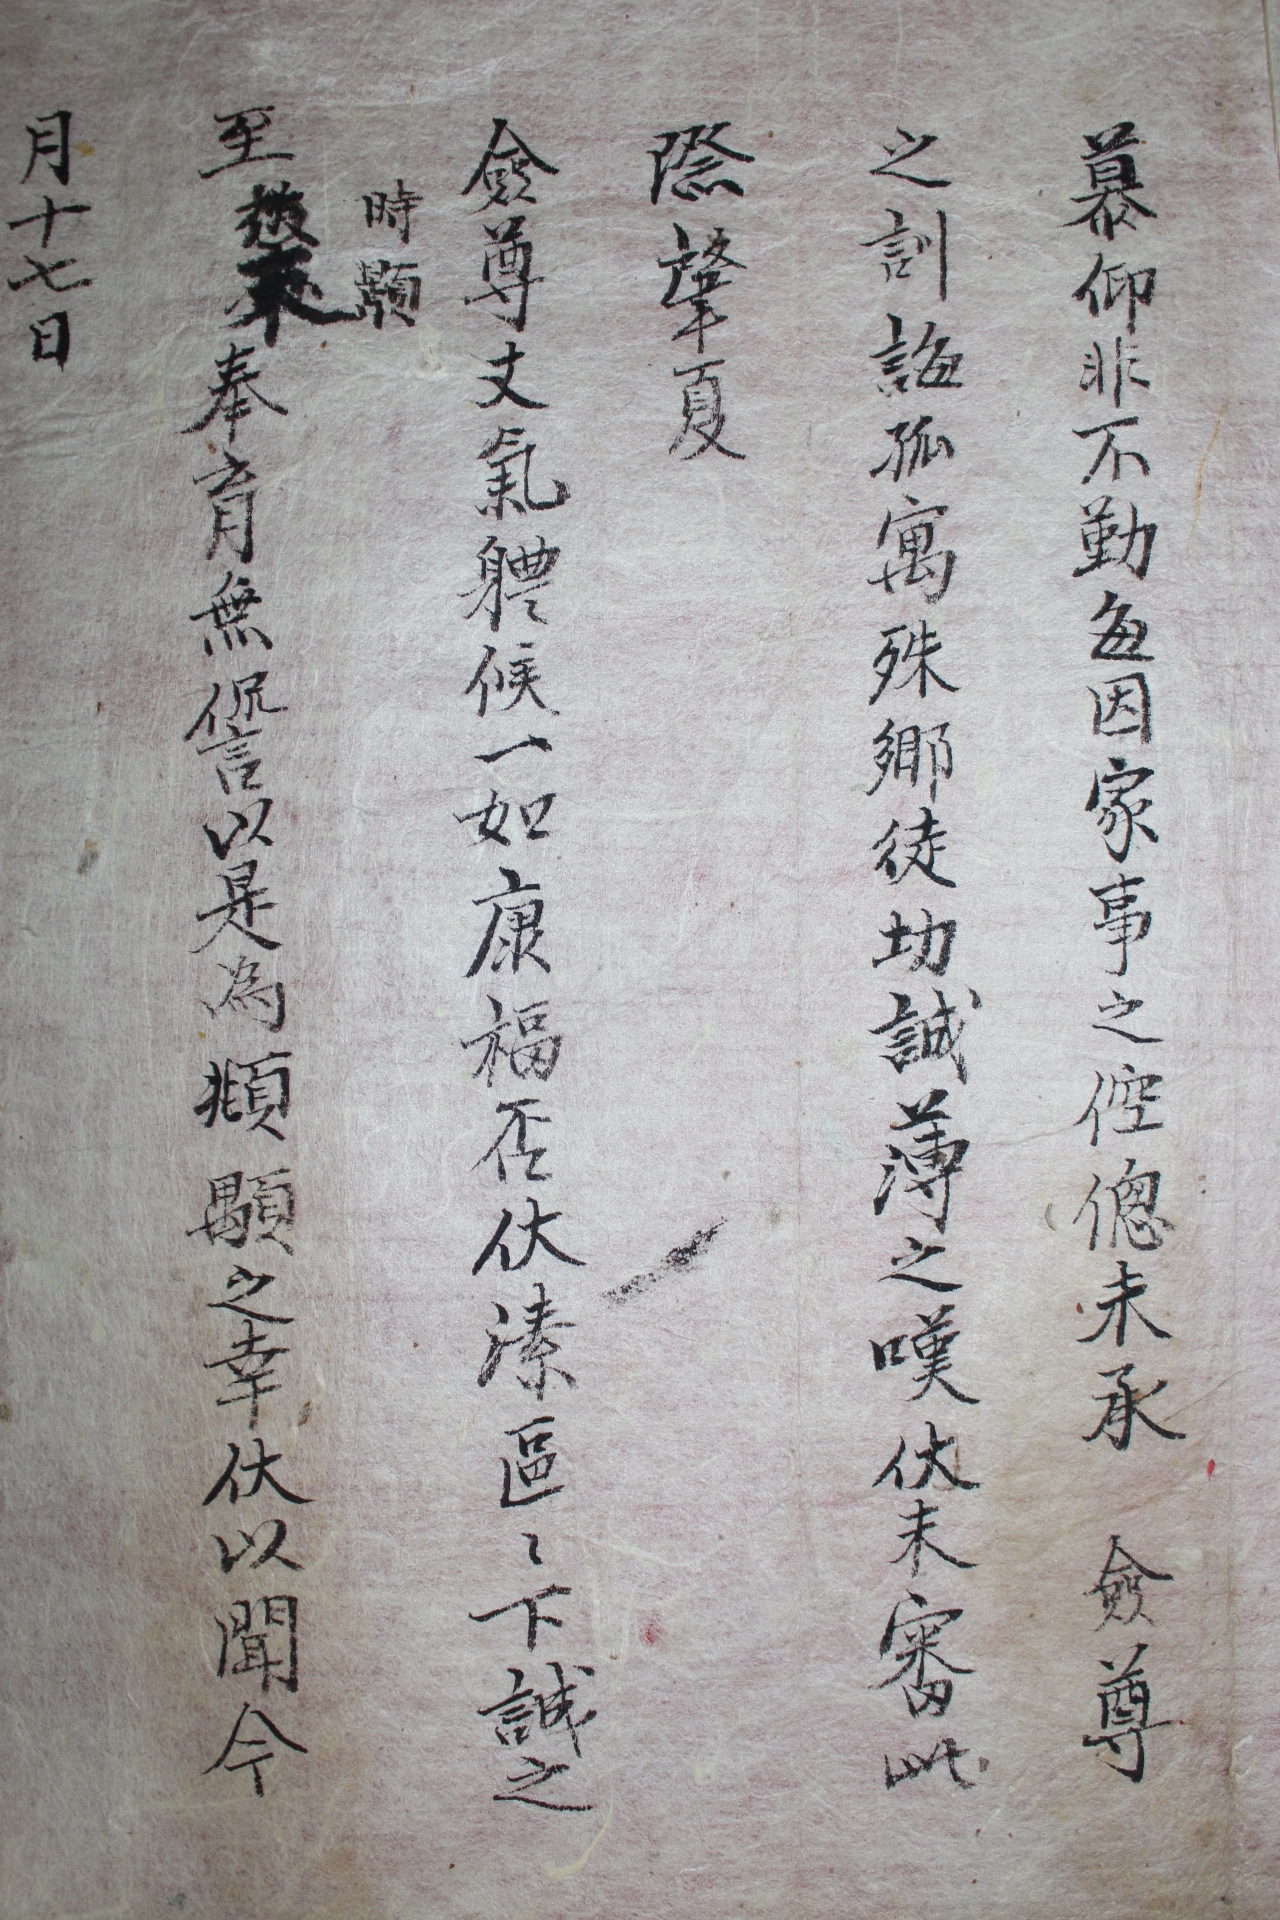 慕仰非不勤每因家事之倥傯未承 僉尊
之訓誨孤寓殊鄉徒切誠薄之嘆伏未審此
際肇夏
僉尊丈氣軆候一如康福否伏溱區〻下誠之
至 奉育無諐以是為 顒之幸伏以聞今
時顒
月十七日